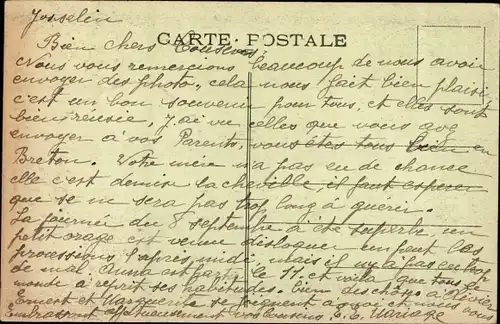 Josselin
CARTE POSTALE
Bien chers Cousins;
Nous vous remercions beaucoup de nous avoir
envoyer des photo, cela nous fait bien plaisir
c'est un bon souvenir pour tous, et elles sont
bien reussie, j'ai vu celles que vous avez
envoyer à vos Parents, vous êtes tous bien en
Breton. Votre mère n'a pas eu de chance
elle c'est demise la cheville, il faut esperer
que se ne sera pas trop long à guérir.
La journée du 8 septembre a été superbe, un
petit orage est venue disloquer un peut les
processions l'après midi, mais il n'y a pas eu trop
de mal. Anna est partie le 11, et voila que tous le
monde à reprit ses habitudes. bien des choses à
Ernest et Marguerite se joignent a moi et nous vous
Embrassont affectueusement vos Cousins.